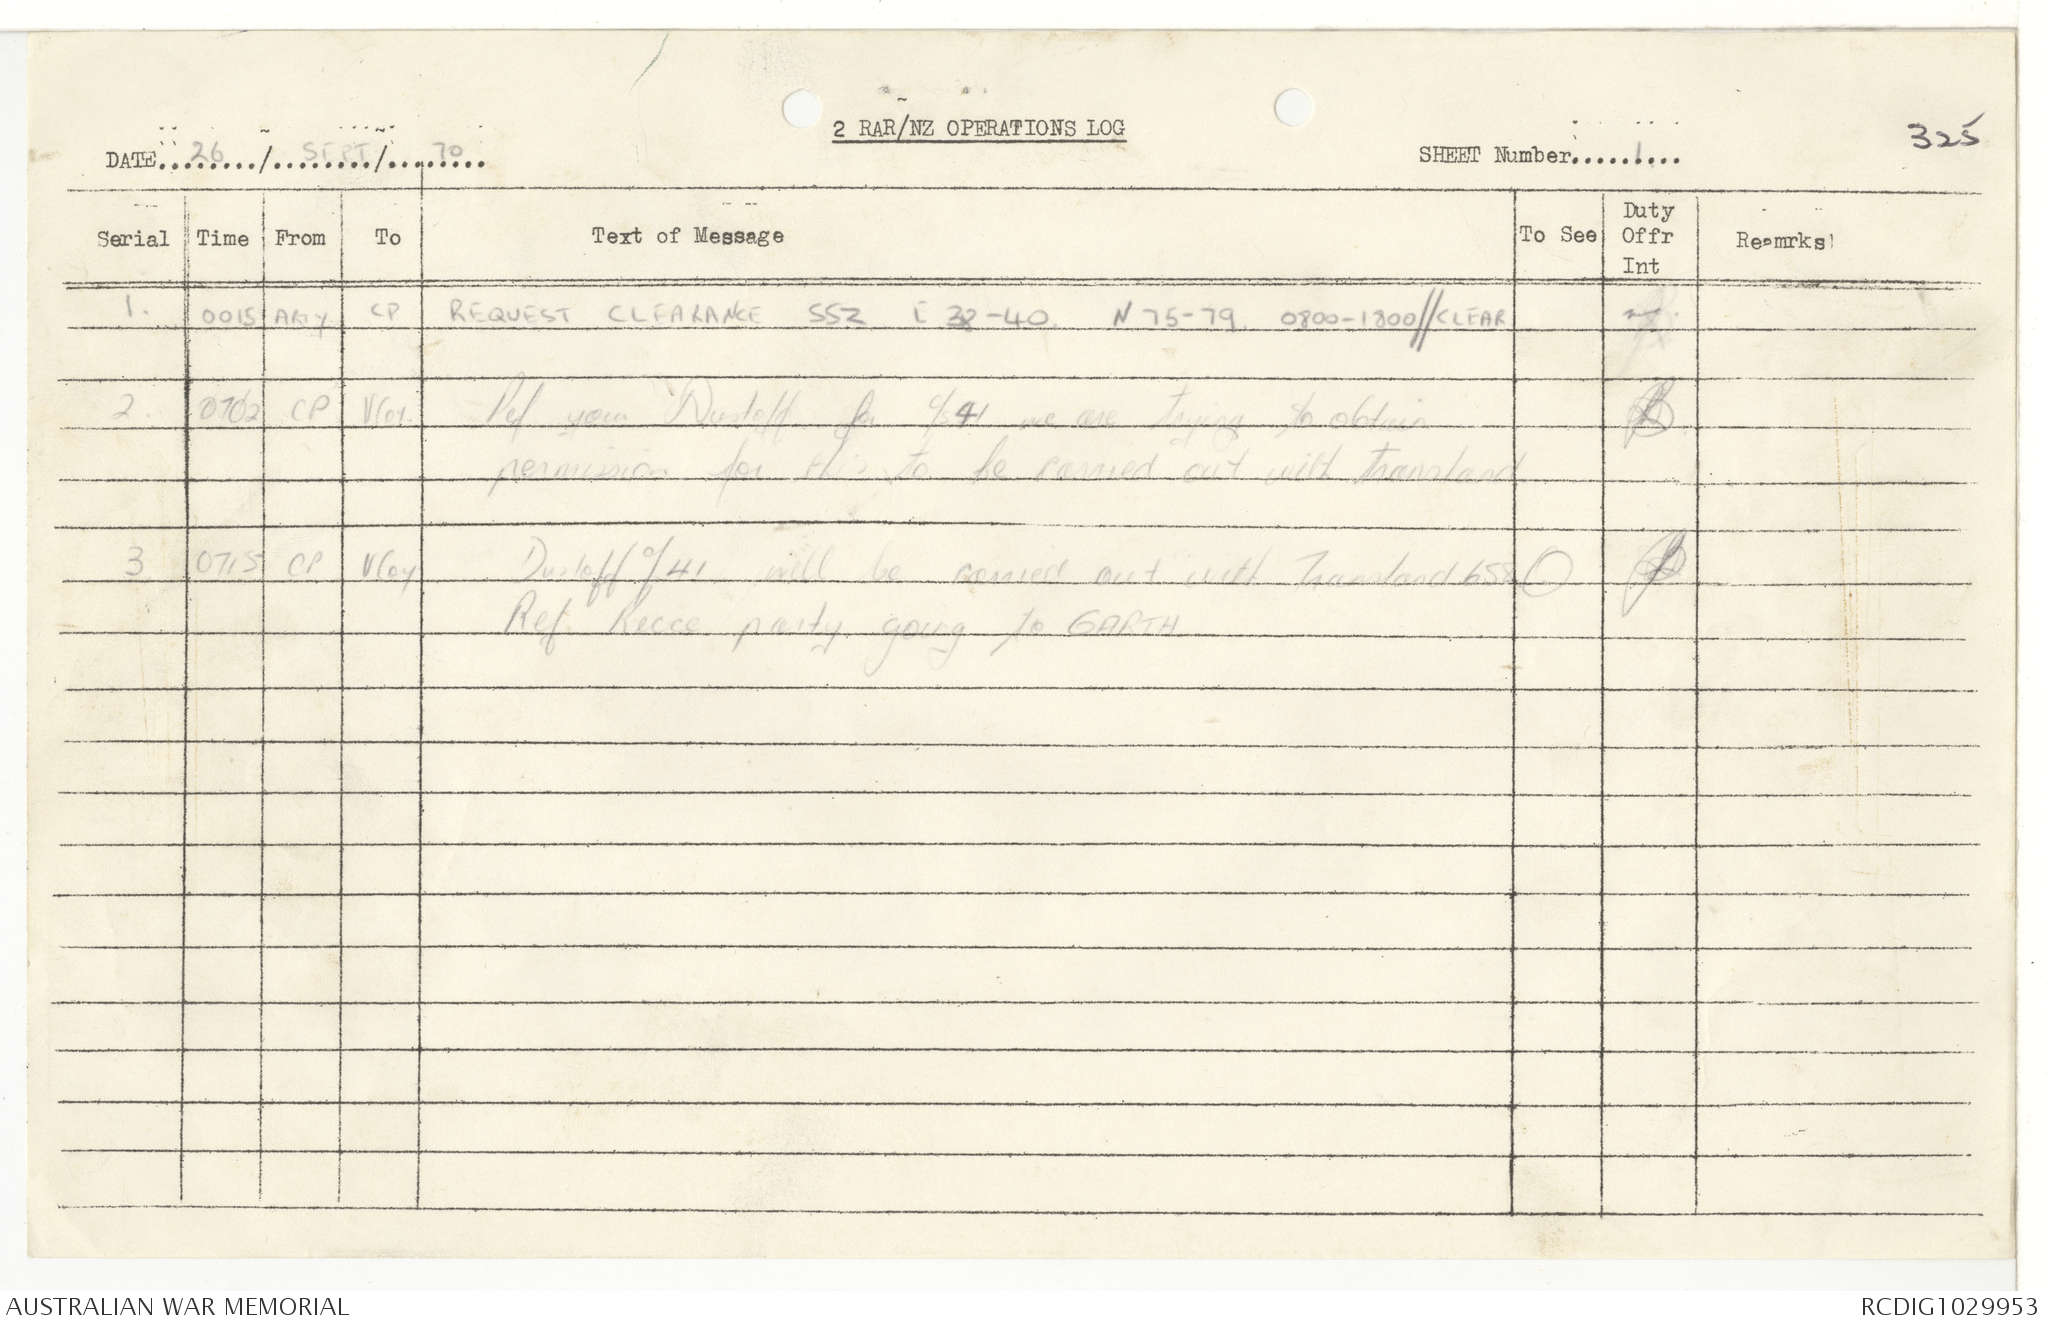 2 RAR/NZ OPERATIONS LOG
325
DATE 26 / SEPT / 70
SHEET Number 1
Serial Time From To Text of Message To See Duty Offr Int Reamrks
1. 0015 ARTY CP REQUEST CLEARANCE SSZ E 38-40. N 75-79. 0800-1800//CLEAR
2. 0702 CP V Coy. Ref your Dustoff for c/s 41 we are trying to obtain
permission for this to be carried out with Transland
3 0715 CP V Coy Dustoff c/41 will be carried out with Transland
Ref. Recce party going to GARTH
AUSTRALIAN WAR MEMORIAL
RCDIG1029953